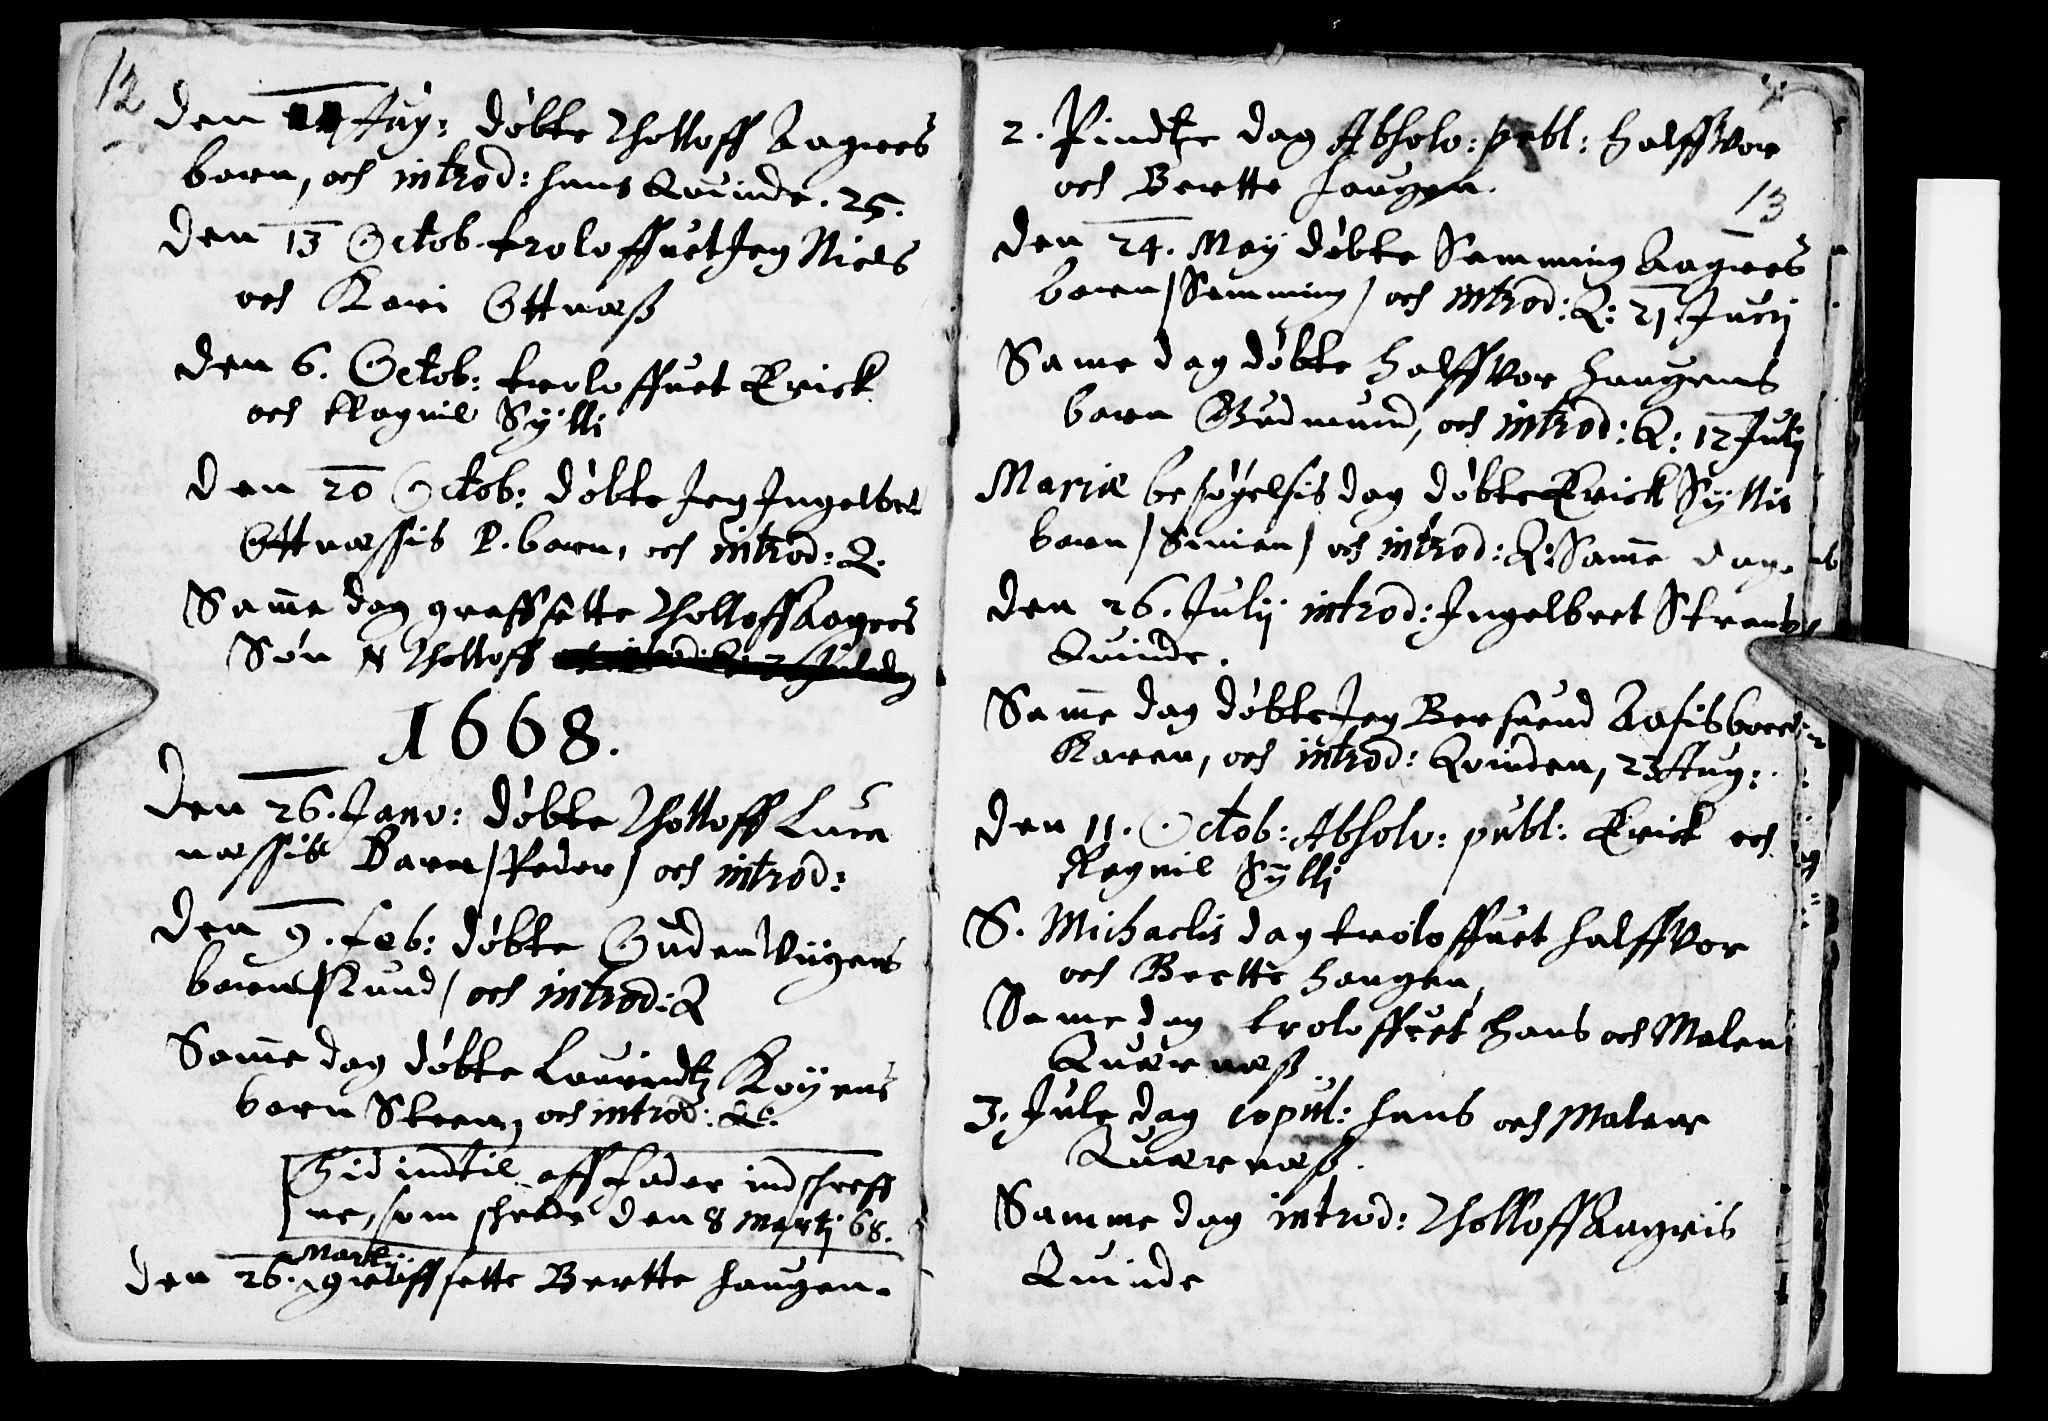 12
den 11 Aug: döbte Tholloff Aagres
barn, och introd: hans Quinde. 25.
den 13 Octob. troloffuet Jeg Niels
och Kari Ottnæß
den 6. Octob: troloffuet Erick
och Ragnil Sÿlli
den 20 Octob: döbte Jeg Ingelbret
Ottnæssis P. barn, och introd: Q.
Samme dag graffsette Tholloff Aagres
Sön N Tholloff
1668.
den 26. Janv: döbte Tholloff Lure
næssis Barn / Peder / och introd:
den 9. Feb: döbte Guden Wiigens
barn / Knud / och introd: Q
Samme dag döbte Lauridtz Röÿens
barn Steen, och introd: Q:
Hid indtil aff Fader indschreff
ne, som schrede den 8 Martij 68.
Martij
den 26. graffsette Bertte Haugen.
2. Pindtze dag Absolv: publ: Halffvor
och Bertte Haugen.
13
den 24. Maÿ döbte Semming Aagres
barn / Semming / och introd: Q: 21. Junij
Same dag döbte Halffvor Haugens
barn Gudmund, och introd: Q: 12 Julij
Mariæ besøgelsis dag döbte Erick Sÿllis
barn / Simen / och introd: Q: Samme dag.
den 26. Julij introd: Ingelbret Strands
Quinde.
Samme dag döbte Jeg Bersuend Aasis barn
Karen, och introd: Qvinden, 23 Aug:
den 11. Octob: Absolv: publ: Erick och
Ragnil Sÿlli
S. Michaelis dag troloffuet Halffvor
och Bertte Haugen,
Same dag troloffuet Hans och Malen
Quærnæß.
3. Jule dag copul: Hans och Malene
Quærnæß.
Samme dag introd: Tholloff Aagris
Quinde